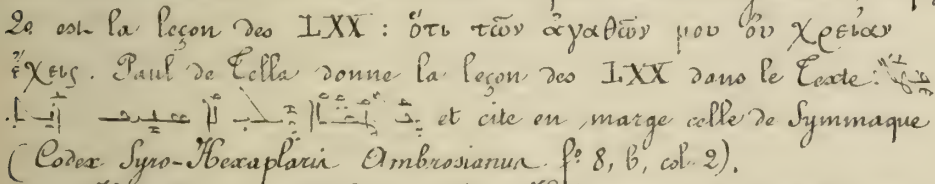 2e est la leçon des LXX : ὅτι τῶν ἀγαθῶν μου οὐ χρείαν
ἔχεις. Paul de Tella donne la leçon des LXX dans le Texte :
et cite en marge celle de Symmaque
(Codex Syro-Hexaplaris Ambrosianus f° 8, b, col. 2).